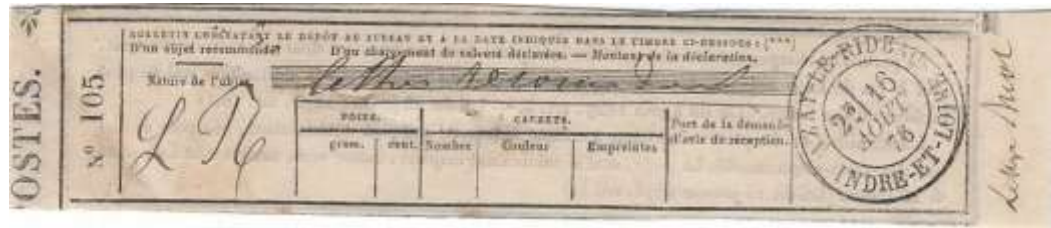 POSTES.
N° 105
BULLETIN CONSTATANT LE DÉPÔT AU BUREAU ET A LA DATE INDIQUÉE DANS LE TIMBRE CI-DESSOUS : (***)
D'un objet recommandé. D'un chargement de valeurs déclarées. — Montant de la déclaration.
Nature de l'objet
lettre
L R
POIDS. CACHETS. Port de la demande
gram. cent. Nombre Couleur Empreintes d'avis de réception.
AZAY-LE-RIDEAU
2E 16
AOUT
76
INDRE-ET-LOIRE
Lettre